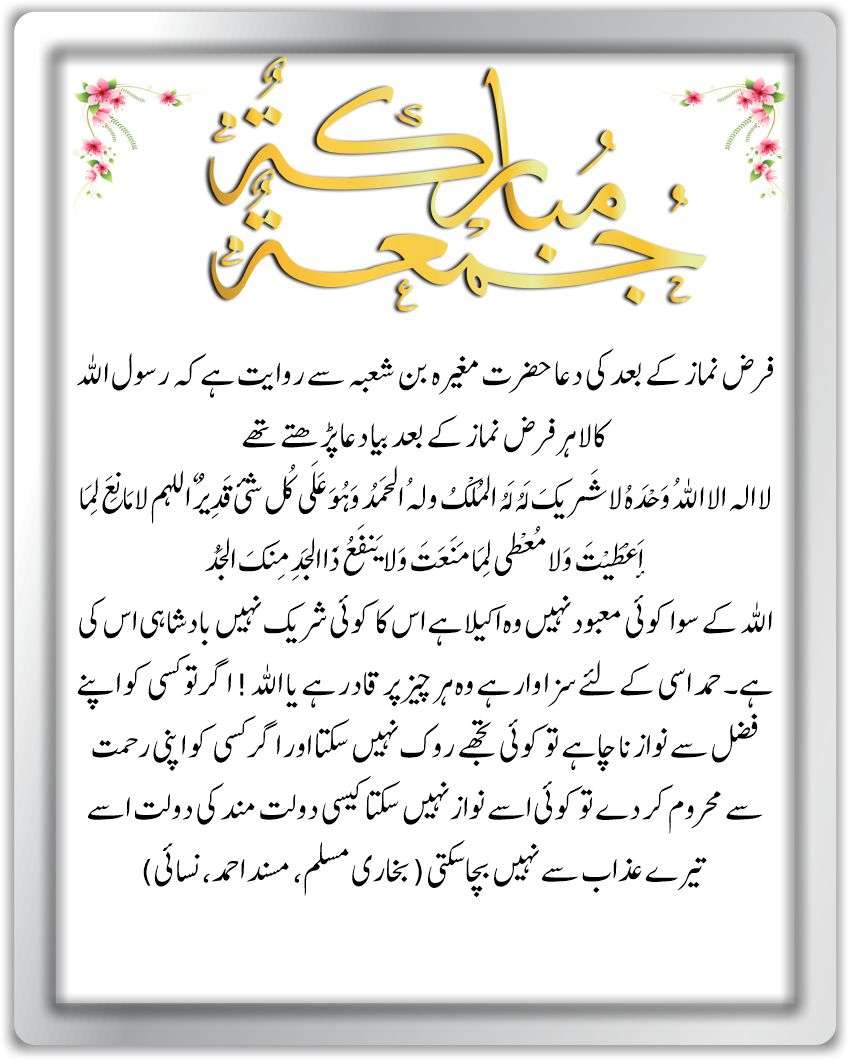 جُمعةٌ مُباركةٌ
فرض نماز کے بعد کی دعا حضرت مغیرہ بن شعبہ سے روایت ہے کہ رسول اللہ
کالا ہر فرض نماز کے بعد بیا دعا پڑھتے تھے
لا الہ الا اللہُ وَحْدَہُ لا شَریکَ لَہُ لَہُ المُلْکُ ولہُ الحَمدُ وَہُوَ عَلَی کُل شئیٍ قَدِیرٌ اللہم لا مَانِعَ لِمَا
إَعْطَیْتَ وَلا مُعْطی لِمَا مَنَعَت وَلا یَنفَعُ ذَا الجَدِ مِنکَ الجَدُّ
اللہ کے سوا کوئی معبود نہیں وہ اکیلا ہے اس کا کوئی شریک نہیں بادشاہی اس کی
ہے۔ حمد اسی کے لئے سزاوار ہے وہ ہر چیز پر قادر ہے یا اللہ ! اگر تو کسی کو اپنے
فضل سے نوازنا چاہے تو کوئی تجھے روک نہیں سکتا اور اگر کسی کو اپنی رحمت
سے محروم کر دے تو کوئی اسے نواز نہیں سکتا کیسی دولت مند کی دولت اسے
تیرے عذاب سے نہیں بچا سکتی ( بخاری مسلم، مسند احمد، نسائی)